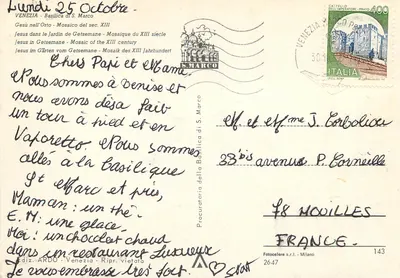 Lundi 25 Octobre.
VENEZIA - Basilica di S. Marco
Gesù nell'Orto - Mosaico del sec. XIII
Jesus dans le Jardin de Getsemane - Mosaïque du XIII siècle
Jesus in Getsemane - Mosaic of the XIII century
Jesus im Gärten vom Getsemane - Mosaik des XIII Jahrhundert
S. MARCO
CASTELLO
400
ITALIA
VENEZIA
Chers Papi et Mamé
Nous sommes à Venise et
nous avons déja fait
un tour à pied et en
Vaporetto. Nous sommes
allés à la Basilique
St Marc et puis,
Maman : un thé.
E.M : une glace.
Moi : un chocolat chaud
dans un restaurant Luxueux
Je vous embrasse très fort.
Procuratoria della Basilica di S. Marco
M. et Mme J. Corbolios
33bis avenue P. Corneille
78 NOUILLES
FRANCE.
Ediz. ARDO - Venezia - Rip. vietata
Fotocolore s.r.l. - Milano
26-47
143